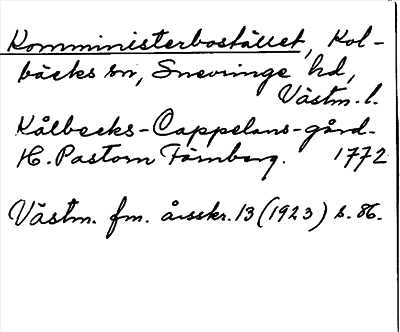 Komministerbostället, Kol-
bäcks sn, Snevringe hd,
Västm. l.
Kålbecks-Cappelans-gård.
H. Pastorn Färnberg. 1772
Västm. fm. årsskr. 13 (1923) s. 86.